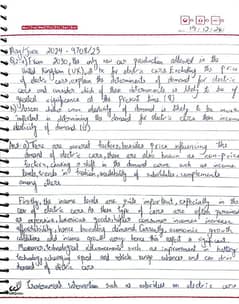 19.12.24
May/June 2024 - 9708/23
Q.5. a) From 2030, the only new car production allowed in the
United Kingdom (UK) will be for electric cars. Excluding the price
of electric cars, explain the determinants of demand for electric
cars and consider which of these determinants is likely to be of
greatest significance at the present time. (8)
b) Assess which elasticity of demand is likely to be more
in determining the demand for electric cars than income
elasticity of demand. (12)
Ans a) There are several factors, besides Price influencing the
demand of electric cars, these are also known as non-price
factors, causing a shift in the demand curve such as income
levels, trends in fashion, availability of substitutes, complements
among others
Firstly, the income levels are quite important, especially in the
case of electric cars. As these type of cars are often
as expensive, luxurious goods, when consumer incomes increase
affordability, hence boosting demand. Currently, economic growth
and income growth
Moreover, technological advancements such as improvement in battery
technology, charging speed and vehicle range
demand of electric cars
Government intervention such as subsidies on electric cars